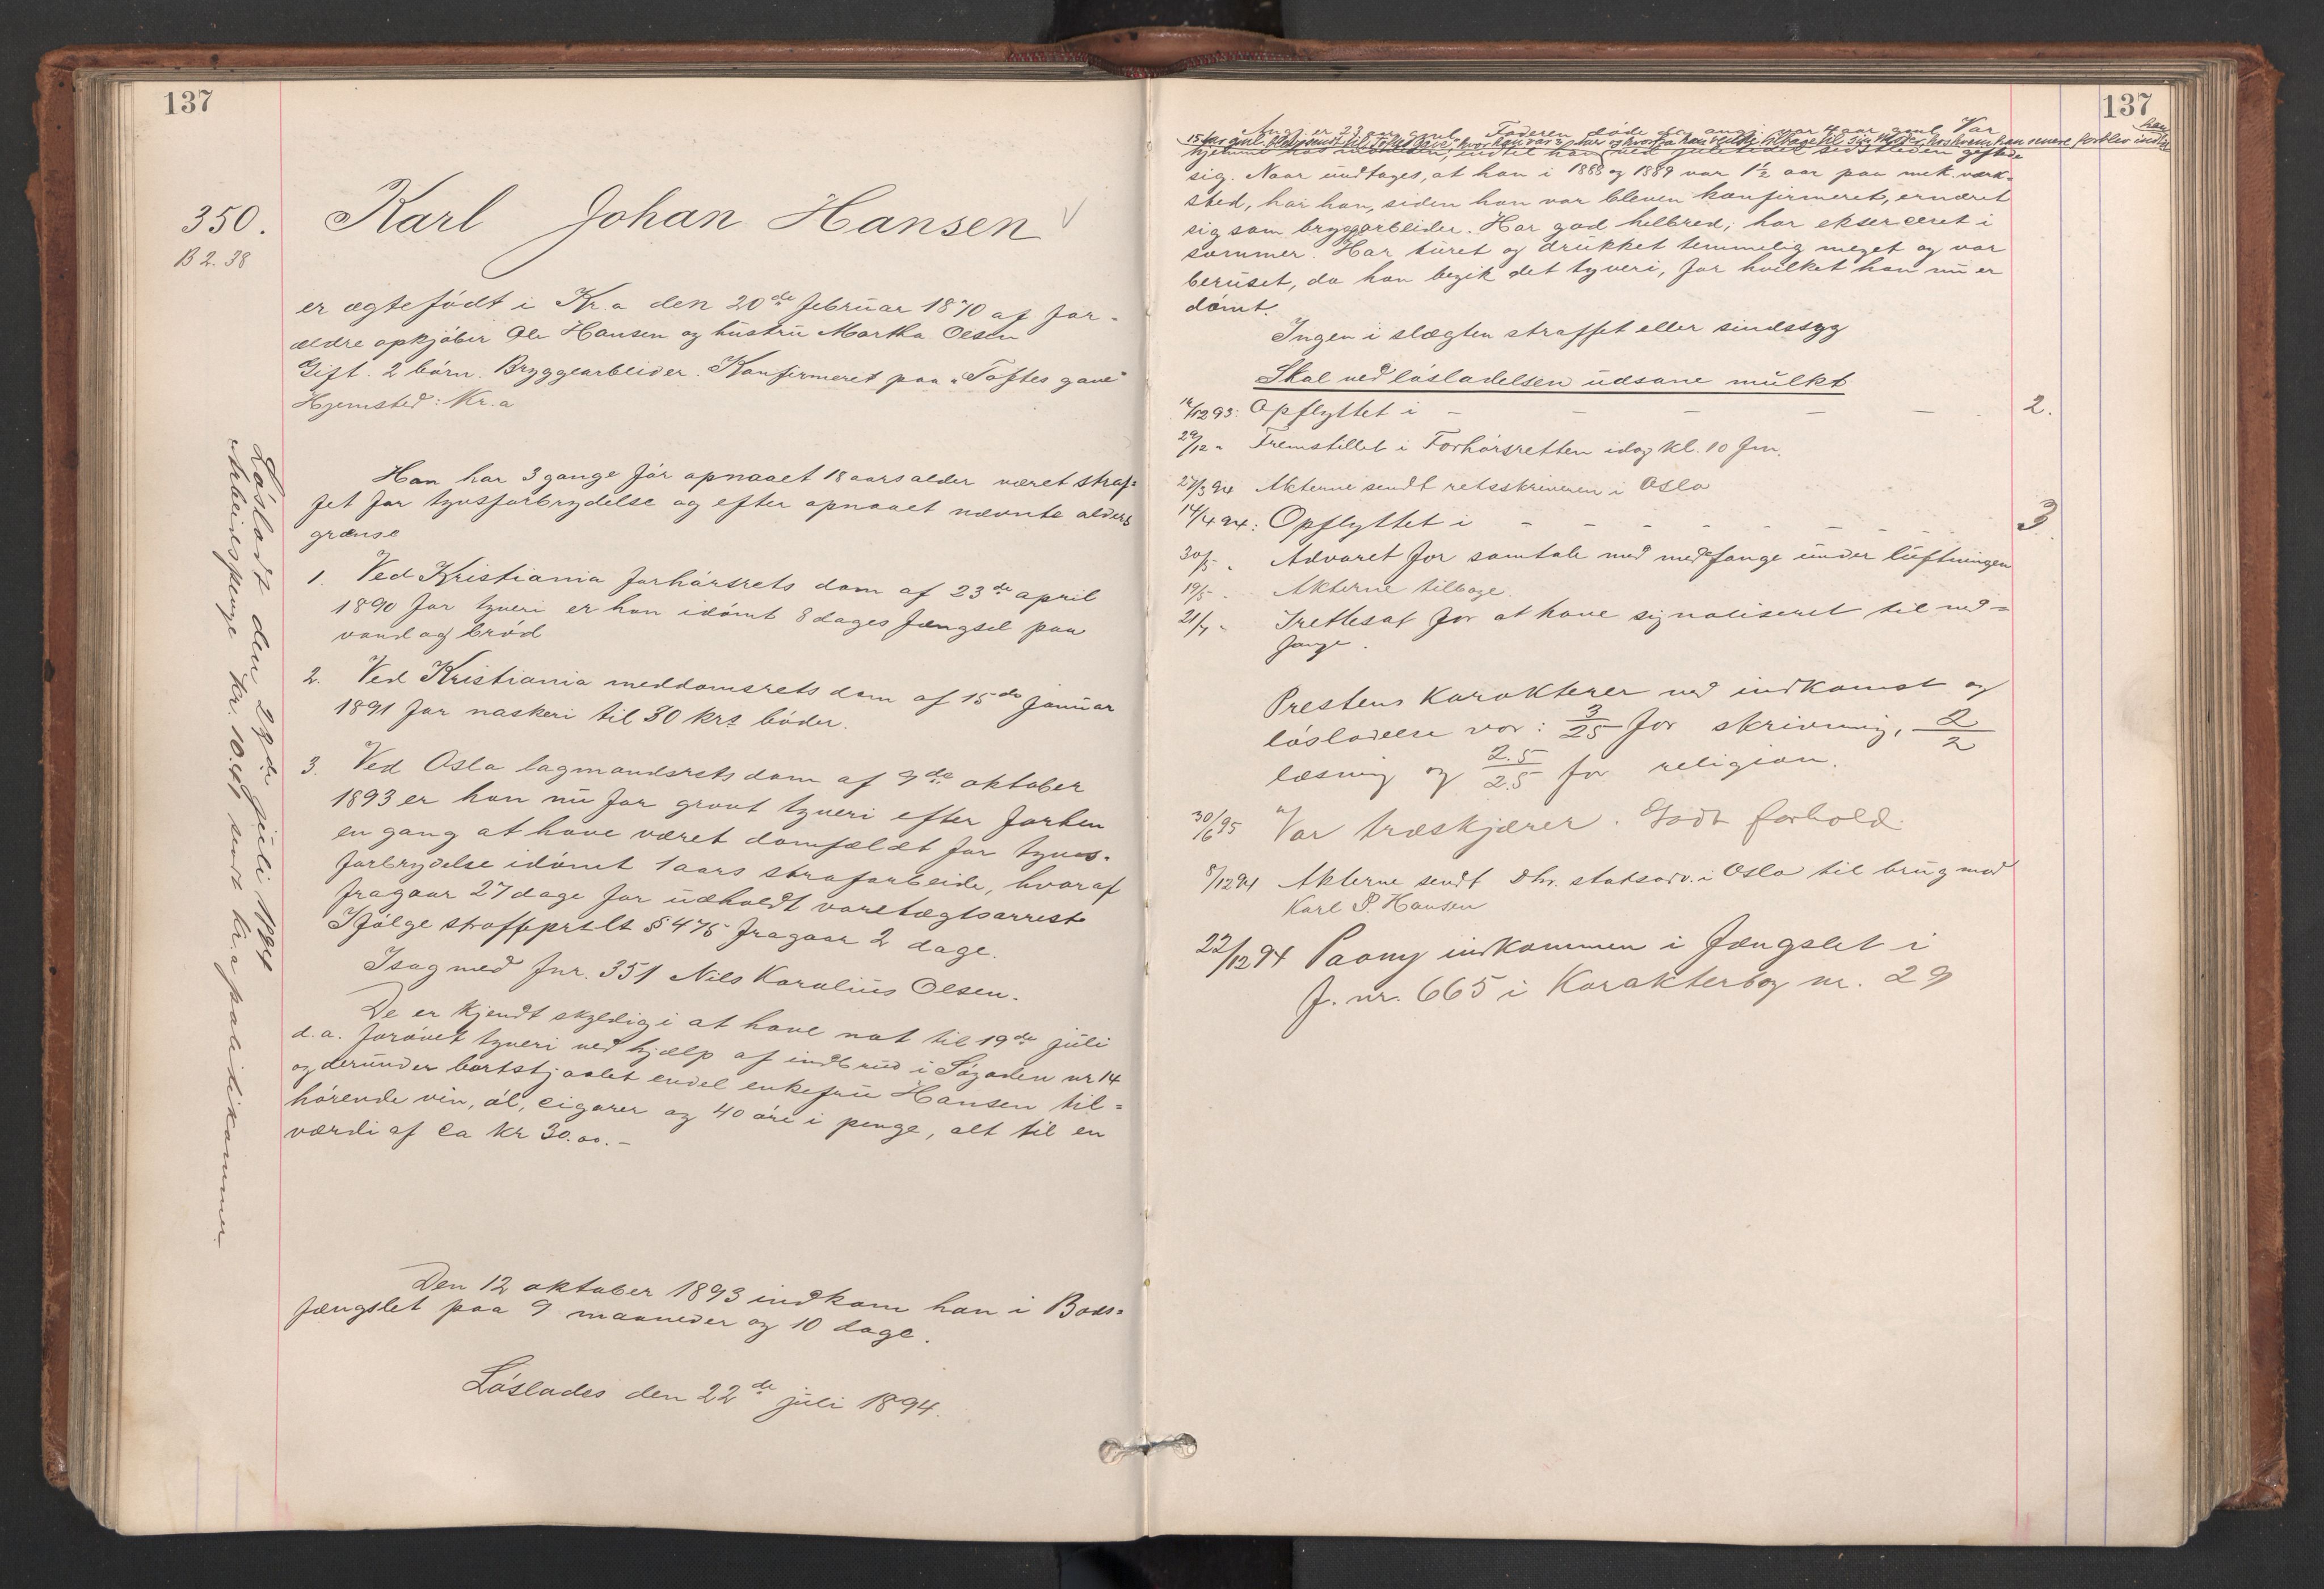 137
350.
B 2. 38
Karl Johan Hansen
er ægtefödt i Kr.a den 20de februar 1870 af for-
ældre opkjöber Ole Hansen og hustru Martha Olsen
Gift. 2 börn. Bryggearbeider. Konfirmeret paa "Toftes gave"
Hjemsted: Kr.a
Han har 3 gange för opnaaet 18 aars alder været straf=
fet for tyvsforbrydelse og efter opnaaet nævnte alders
grænse
1. Ved Kristiania forhörsrets dom af 23de april
1890 for tyveri er han idömt 8 dages fængsel paa
vand og bröd
2. Ved Kristiania meddomsrets dom af 15de januar
1891 for naskeri til 30 krs böder.
3. Ved Oslo lagmandsrets dom af 9de oktober
1893 er han nu for grovt tyveri efter forhen
en gang at have været domfældt for tyvs-
forbrydelse idömt 1 aars strafarbeide, hvoraf
fragaar 27 dage for udholdt varetægtsarrest
Ifölge straffeprslt § 475 fragaar 2 dage.
I sag med fnr. 351 Nils Karolius Olsen.
De er kjendt skyldig i at have nat til 19de juli
d.a. forövet tyveri ved hjælp af indbrud i Sögaden nr 14
og derunder bortstjaalet endel enkefru Hansen til=
hörende vin, öl, cigarer og 40 öre i penge, alt til en
værdi af ca kr 30.00.-
Den 12 oktober 1893 indkom han i Bods=
fængslet paa 9 maaneder og 10 dage.
Löslades den 22de juli 1894.
Lösladt den 22de juli 1894
Arbeidspenge kr. 10.41 sendt kr.a politikammer.
137
Angj. er 23 aar gml. Faderen döde da angj. var 4 aar gml. Var han
15 aar gml. blev sendt til Toftes Gave, hvor han var 2 aar og hvorfra han vendte tilbage til sin moder, hos hvem han senere forblev indtil
hjemme hos moderen, indtil han ved juletider sidstleden giftede
sig. Naar undtages, at han i 1888 og 1889 var 1½ aar paa mek. værk-
sted, har han, siden han var bleven konfirmeret, ernæret
sig som bryggarbeider. Har god helbred; har ekserceret i
sommer. Har turet og drukket temmelig meget og var
beruset, da han begik det tyveri, for hvilket han nu er
dömt.
Ingen i slægten straffet eller sindssyg
Skal ved lösladelsen udsone mulkt
12 93: Opflyttet i - - - - - 2.
29/12 " Fremstillet i Forhörsretten idag kl. 10 Fm.
27/3 94 Akterne sendt retsskriveren i Oslo
14/4 94: Opflyttet i - - - - - - - 3
30/5 " Advaret for samtale med medfange under luftningen
19/5 " Akterne tilbage.
21/7 " Irettesat for at have signaliseret til med=
fange.
Prestens Karakterer ved indkomst og
lösladelse var: 3/25 for skrivning, 2/2
læsning og 2.5/2.5 for religion.
30/6 95 Var træskjærer. Godt forhold.
8/12 94 Akterne sendt Dhr. statsadv. i Oslo til brug mod
Karl P. Hansen
22/12 94 Paany indkommen i fængslet i
f. nr. 665 i Karakterbog nr. 29